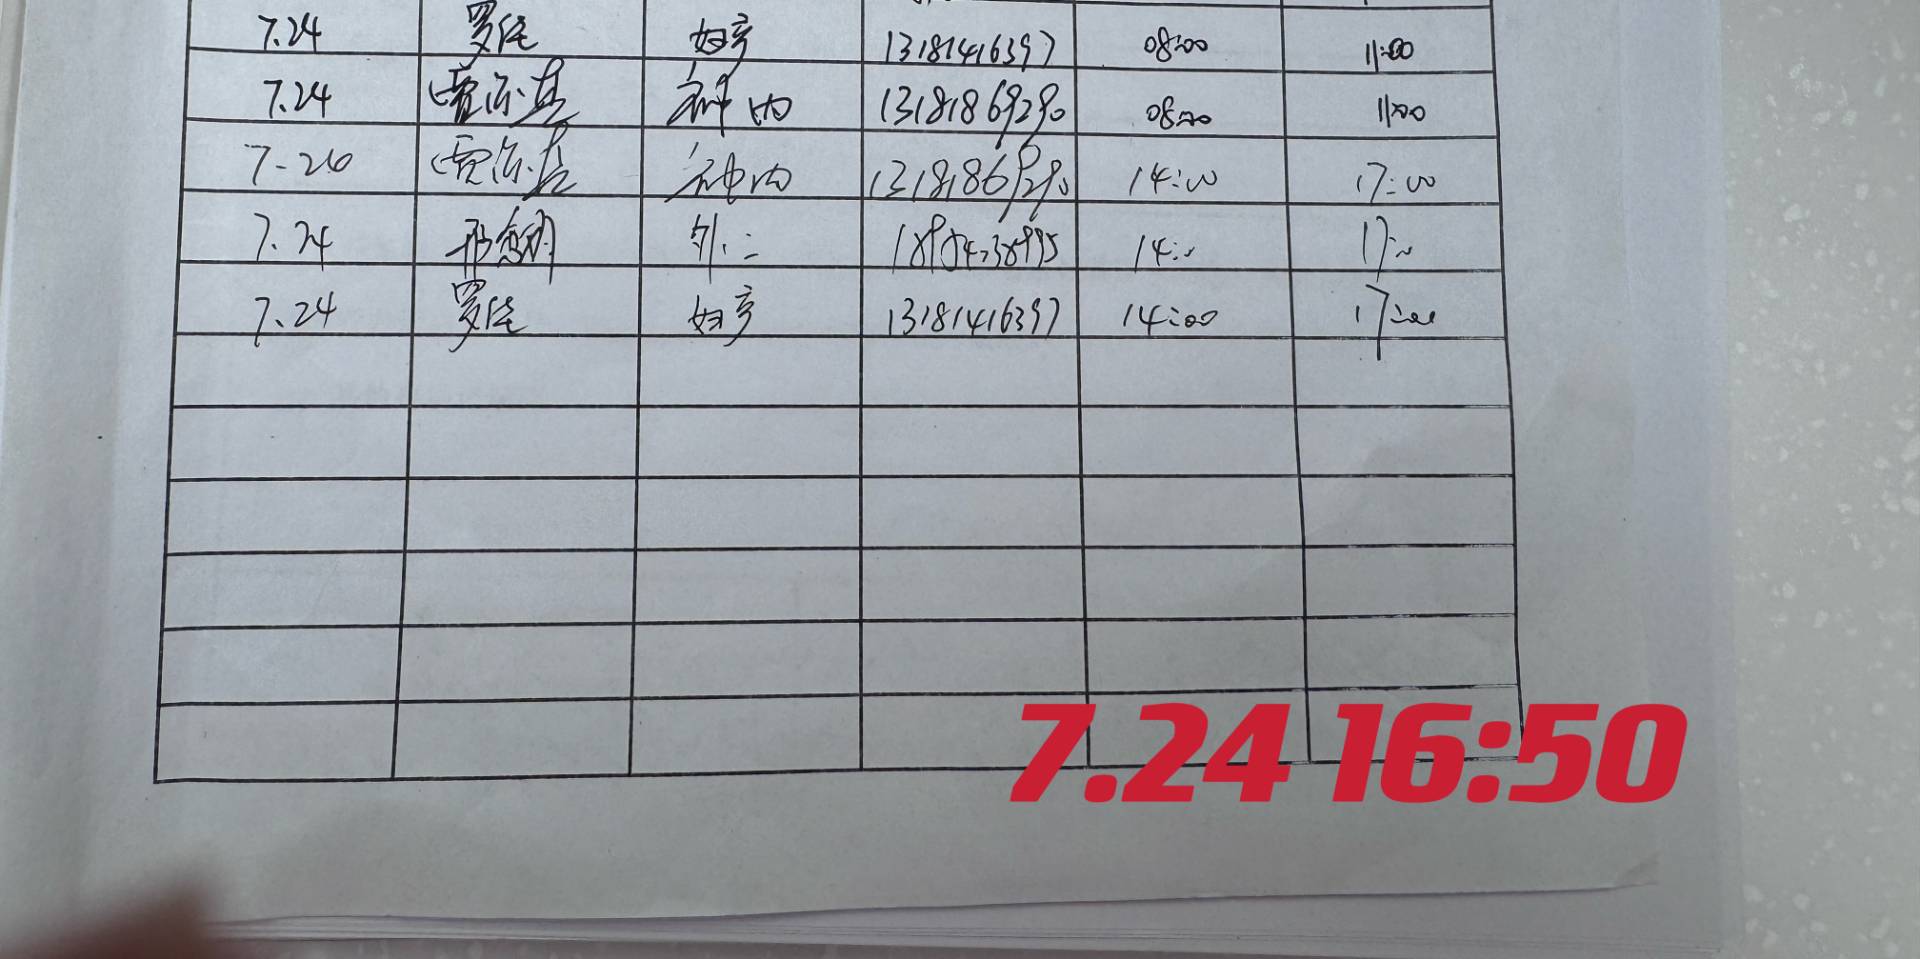 7.24 罗佳 妇产 13181416397 08:00 11:00
7.24 贾 神内 13181869290 08:00 11:00
7-26 贾 神内 13181869290 14:00 17:00
7.24 外二 14:00 17:00
7.24 罗佳 妇产 13181416397 14:00 17:00
7.24 16:50